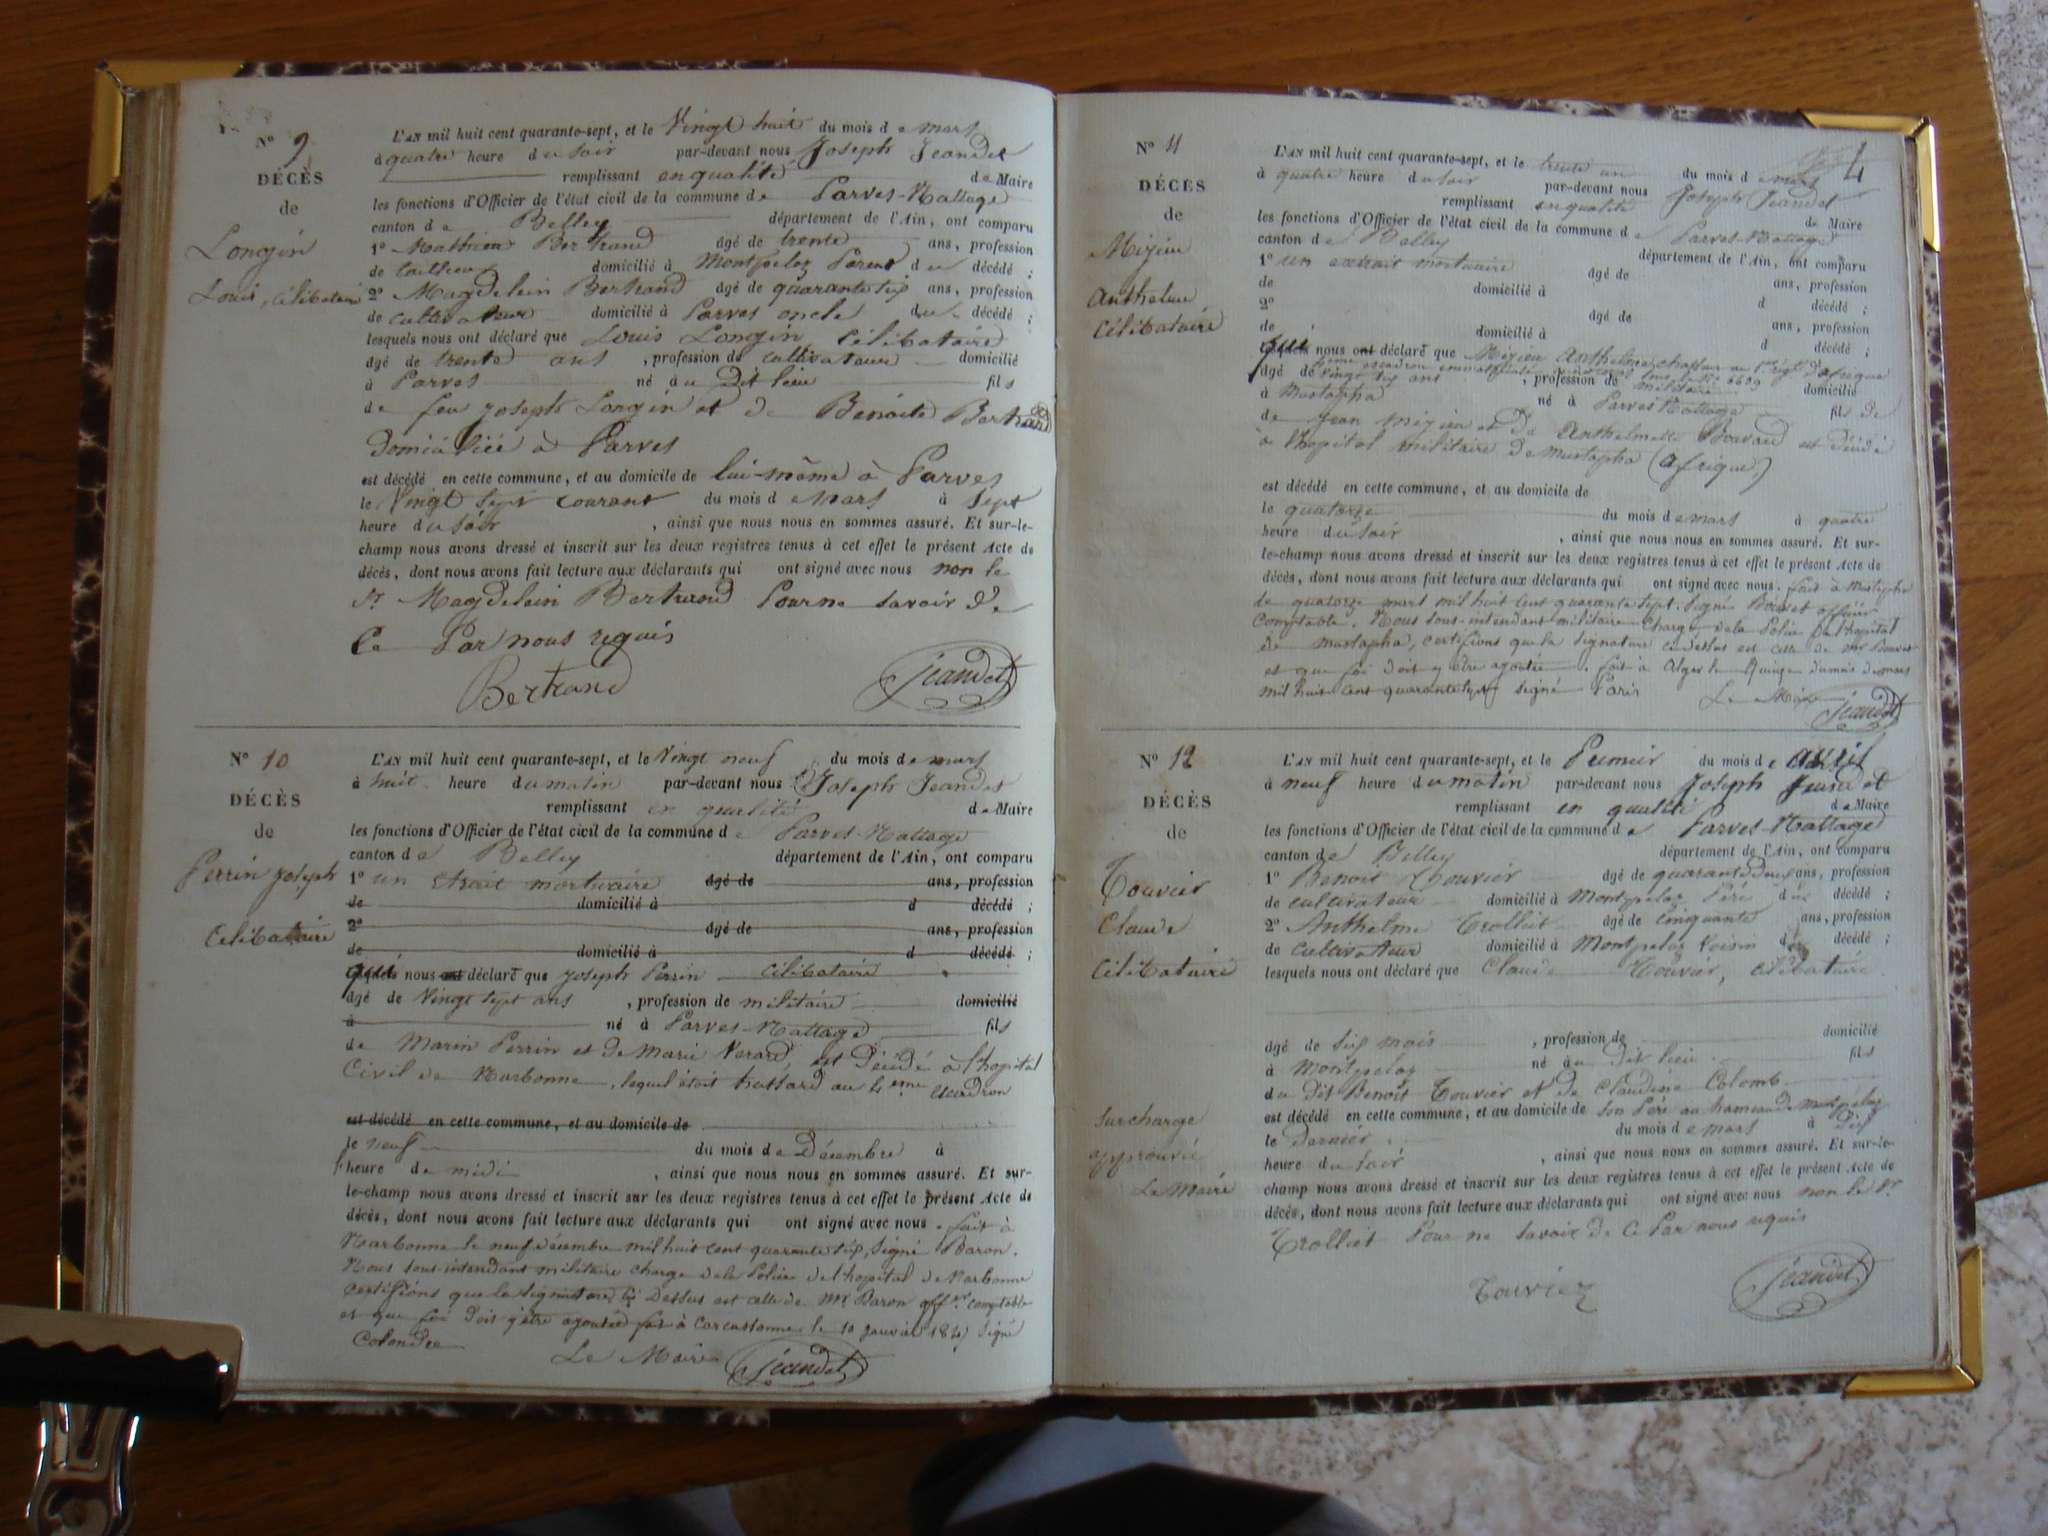 N° 9
DÉCÈS
de
Longin
Louis, célibataire
L'AN mil huit cent quarante-sept, et le Vingt huit du mois de mars
à quatre heure du soir par-devant nous Joseph Jeandet
remplissant en qualité de Maire
les fonctions d'Officier de l'état civil de la commune de Parves-Nattage
canton de Belley département de l'Ain, ont comparu
1° Mathieu Bertrand âgé de trente ans, profession
de domicilié à Montpelaz Parent du décédé ;
2° Magdelein Bertrand âgé de quarante six ans, profession
de cultivateur domicilié à Parves oncle du décédé ;
lesquels nous ont déclaré que Louis Longin célibataire
âgé de trente ans , profession de cultivateur domicilié
à Parves né au Dit lieu fils
de feu joseph Longin et de Benoite Bertrand
Domiciliée à Parves
est décédé en cette commune, et au domicile de lui-même à Parves
le Vingt Sept courant du mois de mars à Sept
heure du soir , ainsi que nous nous en sommes assuré. Et sur-le-
champ nous avons dressé et inscrit sur les deux registres tenus à cet effet le présent Acte de
décès, dont nous avons fait lecture aux déclarants qui ont signé avec nous non le
Sr Magdelein Bertrand Pour ne savoir de
ce Par nous requis
Bertrand Jeandet
N° 10
DÉCÈS
de
Perrin joseph
Célibataire
L'AN mil huit cent quarante-sept, et le Vingt neuf du mois de mars
à huit heure du matin par-devant nous Joseph Jeandet
remplissant en qualité de Maire
les fonctions d'Officier de l'état civil de la commune de Parves-Nattage
canton de Belley département de l'Ain, ont comparu
1° un extrait mortuaire âgé de ans, profession
de domicilié à d décédé ;
2° âgé de ans, profession
de domicilié à d décédé ;
qui nous ont déclaré que joseph Perrin célibataire
âgé de Vingt Sept ans , profession de militaire domicilié
à né à Parves-Nattage fils
de Marin Perrin et de Marie est Décédé à l'hopital
Civil de Narbonne, lequel était hussard au 4eme Escadron
est décédé en cette commune, et au domicile de
le neuf du mois de Décembre à
heure de midi , ainsi que nous nous en sommes assuré. Et sur-
le-champ nous avons dressé et inscrit sur les deux registres tenus à cet effet le présent Acte de
décès, dont nous avons fait lecture aux déclarants qui ont signé avec nous. fait à
Narbonne le neuf décembre mil huit cent quarante six, Signé Baron.
Nous sous-intendant militaire chargé de la Police de l'hopital de Narbonne
certifions que la signature ci Dessus est celle de Mr Baron offer comptable
et que foi doit y être ajoutée fait à Carcassonne le 10 janvier 1847 Signé
Colondre
Le Maire Jeandet
4
N° 11
DÉCÈS
de
Mizieu
Anthelme
Célibataire
L'AN mil huit cent quarante-sept, et le trente un du mois de mars
à quatre heure du soir par-devant nous Joseph Jeandet
remplissant en qualité de Maire
les fonctions d'Officier de l'état civil de la commune de Parves-Nattage
canton de Belley département de l'Ain, ont comparu
1° un extrait mortuaire âgé de ans, profession
de domicilié à d décédé ;
2° âgé de ans, profession
de domicilié à d décédé ;
qui nous ont déclaré que Mizieu Anthelme chasseur au 1er régt d'afrique
escadron immatriculé sous le N° 6609
âgé de vingt six ans , profession de militaire domicilié
à Mustapha né à Parves Nattage fils de
de Jean Mizieu et de Anthelmette Bovard est Décédé
à l'hopital militaire de Mustapha (Afrique)
est décédé en cette commune, et au domicile de
le quatorze du mois de mars à quatre
heure du soir , ainsi que nous nous en sommes assuré. Et sur-
le-champ nous avons dressé et inscrit sur les deux registres tenus à cet effet le présent Acte de
décès, dont nous avons fait lecture aux déclarants qui ont signé avec nous. fait à Mustapha
le quatorze mars mil huit cent quarante sept. Signé officier
Comptable. Nous sous-intendant militaire chargé de la Police de l'hopital
de mustapha, certifions que la signature ci dessus est celle de mr
et que foi doit y être ajoutée. fait à Alger le Quinze du mois de mars
mil huit cent quarante sept signé Paris
Le Maire Jeandet
N° 12
DÉCÈS
de
Touvier
Claude
Célibataire
surcharge
approuvée
Le Maire
L'AN mil huit cent quarante-sept, et le Premier du mois de avril
à neuf heure du matin par-devant nous Joseph Jeandet
remplissant en qualité de Maire
les fonctions d'Officier de l'état civil de la commune de Parves-Nattage
canton de Belley département de l'Ain, ont comparu
1° Benoit Touvier âgé de quarante deux ans, profession
de cultivateur domicilié à Montpelaz Père du décédé ;
2° Anthelme Trolliet âgé de cinquante ans, profession
de cultivateur domicilié à Montpelaz Voisin du décédé ;
lesquels nous ont déclaré que Claude Touvier, célibataire
âgé de six mois , profession de domicilié
à Montpelaz né au dit lieu fils
du Dit Benoit Touvier et de Claudine Colomb
est décédé en cette commune, et au domicile de son Père au hameau de Montpelaz
le Dernier du mois de mars à Dix
heure du soir , ainsi que nous nous en sommes assuré. Et sur-le-
champ nous avons dressé et inscrit sur les deux registres tenus à cet effet le présent Acte de
décès, dont nous avons fait lecture aux déclarants qui ont signé avec nous non le Sr
Trolliet Pour ne savoir de ce Par nous requis
Touvier Jeandet